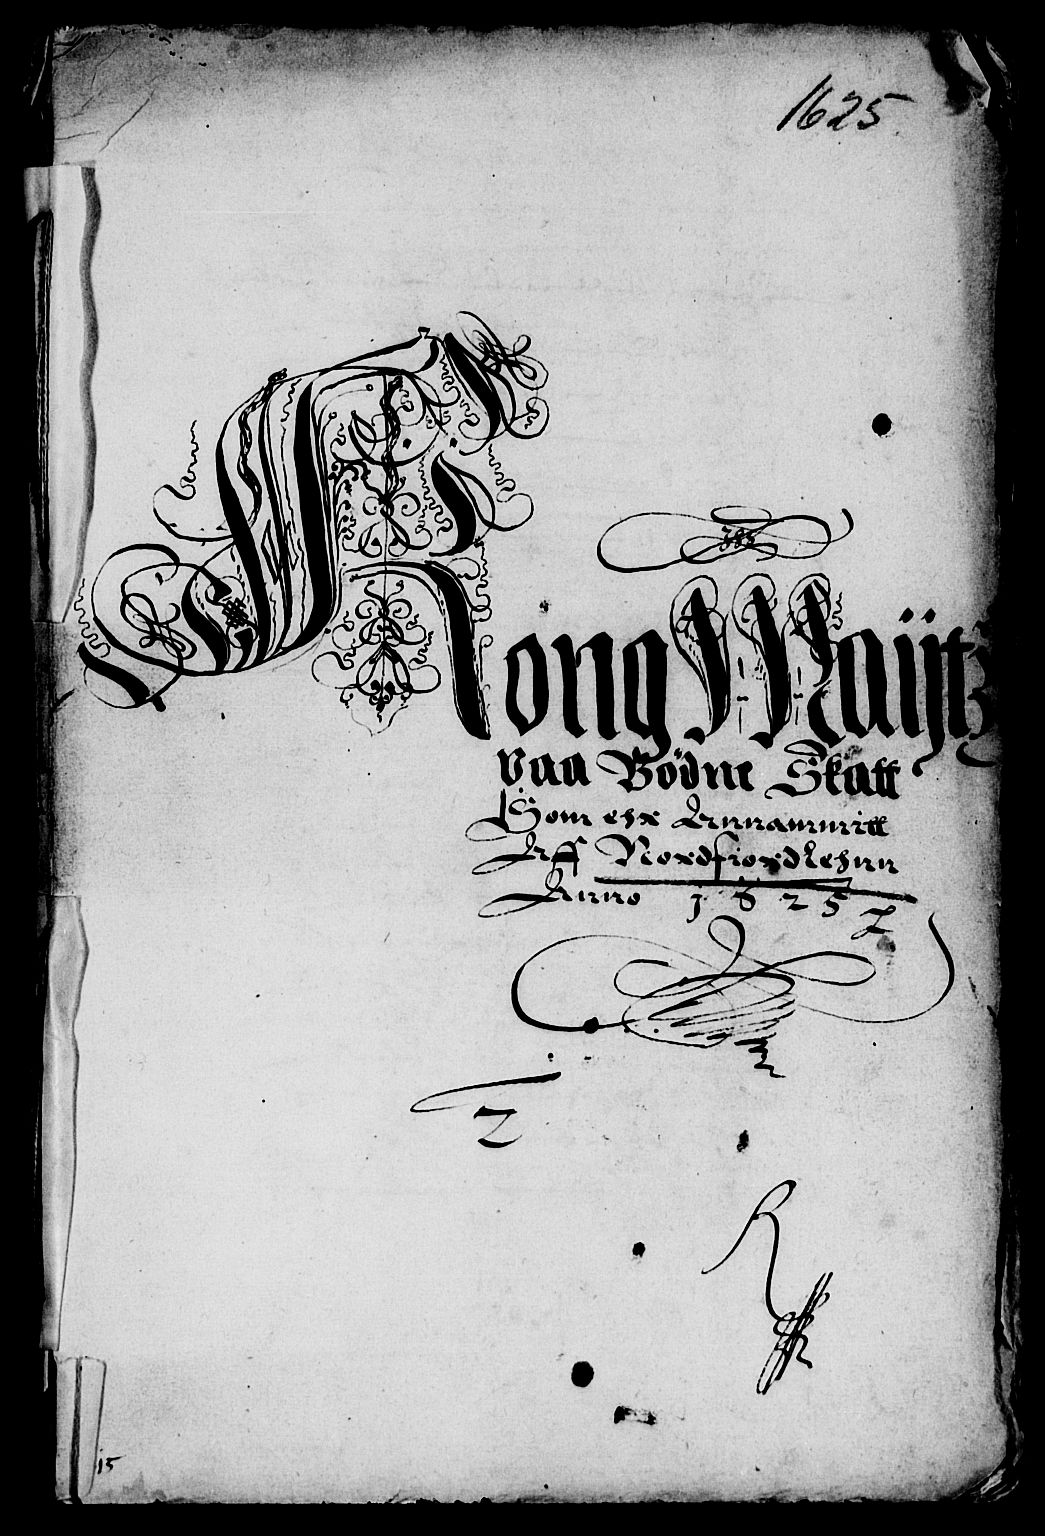 1625
Kong Maÿtz
paa Bödne Skatt
Som ehr Annammitt
Aff Nordfiordlehnn
Anno 1625
2
15